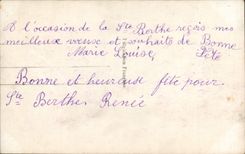 A l'occasion de la Ste Berthe reçois mes
meilleux vœux et souhaits de Bonne
Marie Louise Fête
Bonne et heureuse fête pour
Ste Berthe Renée